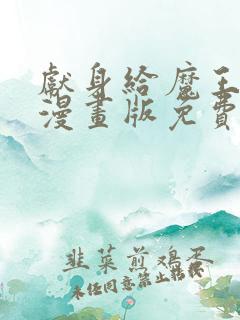 獻身給魔王
漫畫版免費
韭菜煎鸡蛋
未经同意禁止转载